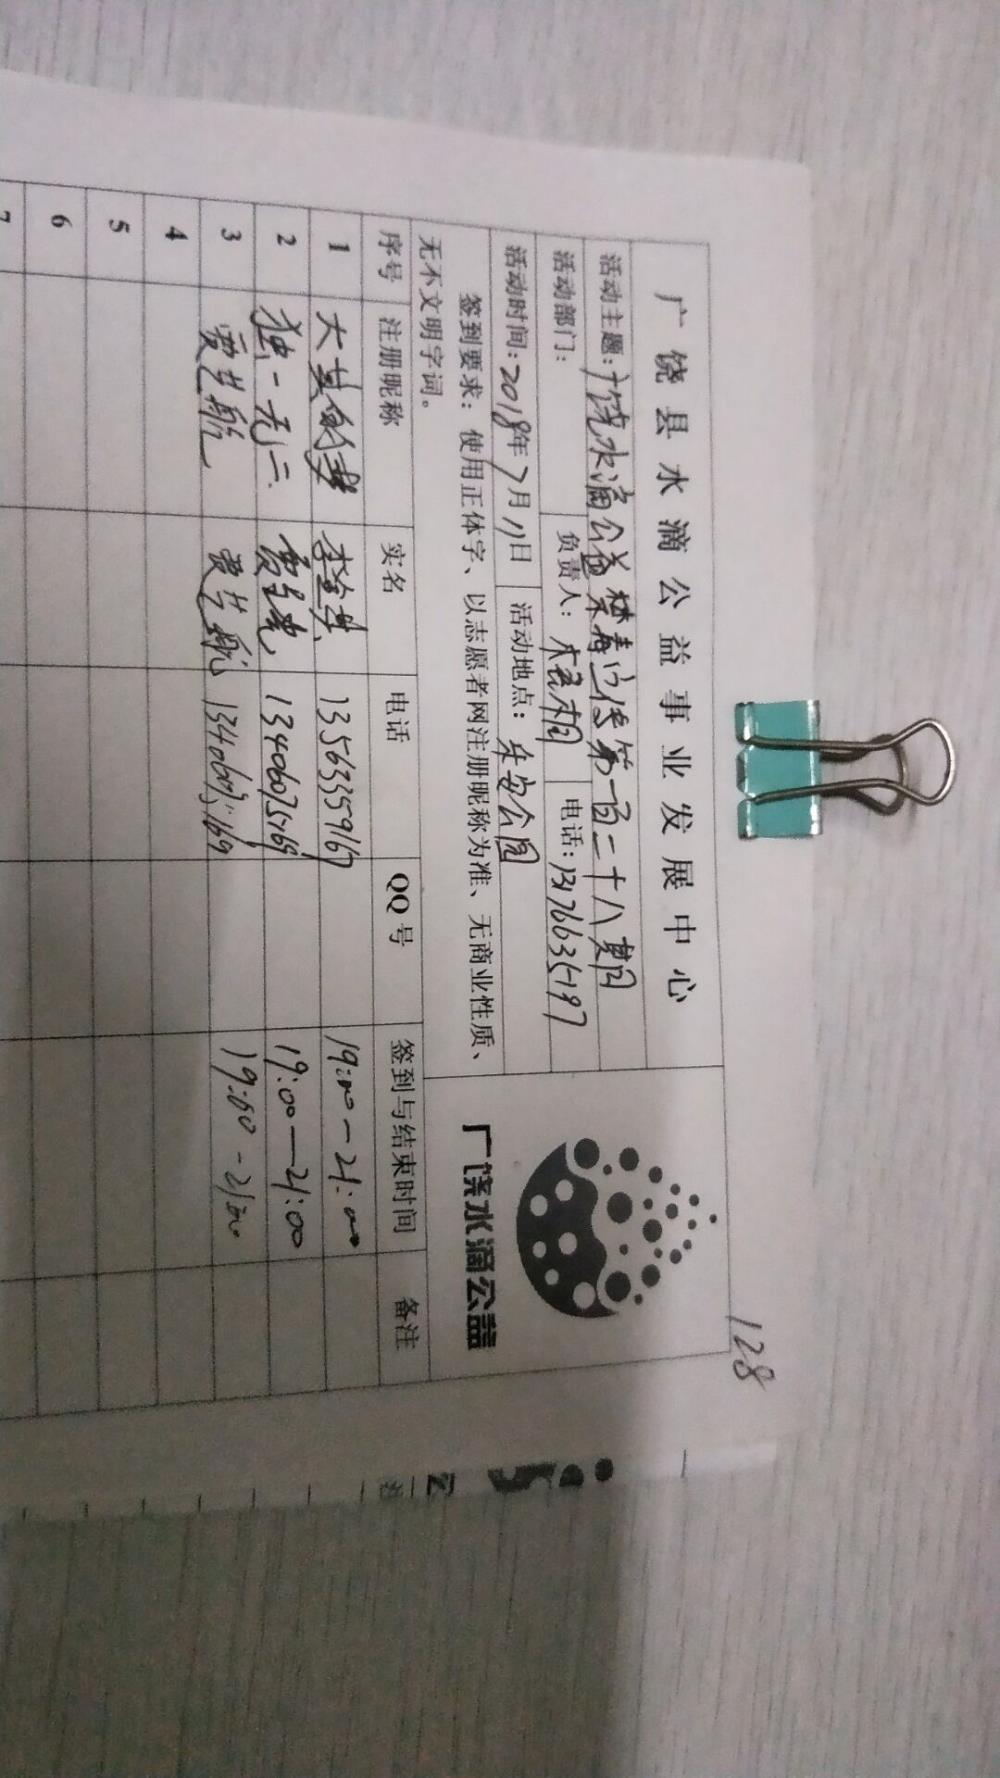 128
广饶县水滴公益事业发展中心
活动主题：广饶水滴公益禁毒宣传第一百二十八期
活动部门： 负责人： 电话：13176635797
活动时间：2018年7月11日 活动地点：乐安公园
签到要求：使用正体字、以志愿者网注册昵称为准、无商业性质、
无不文明字词。
广饶水滴公益
序号 注册昵称 实名 电话 QQ号 签到与结束时间 备注
1 大其的梦 李金其 13563359167 19:00—21:00
2 独一无二 19:00—21:00
3 19:00-21:00
4
5
6
7